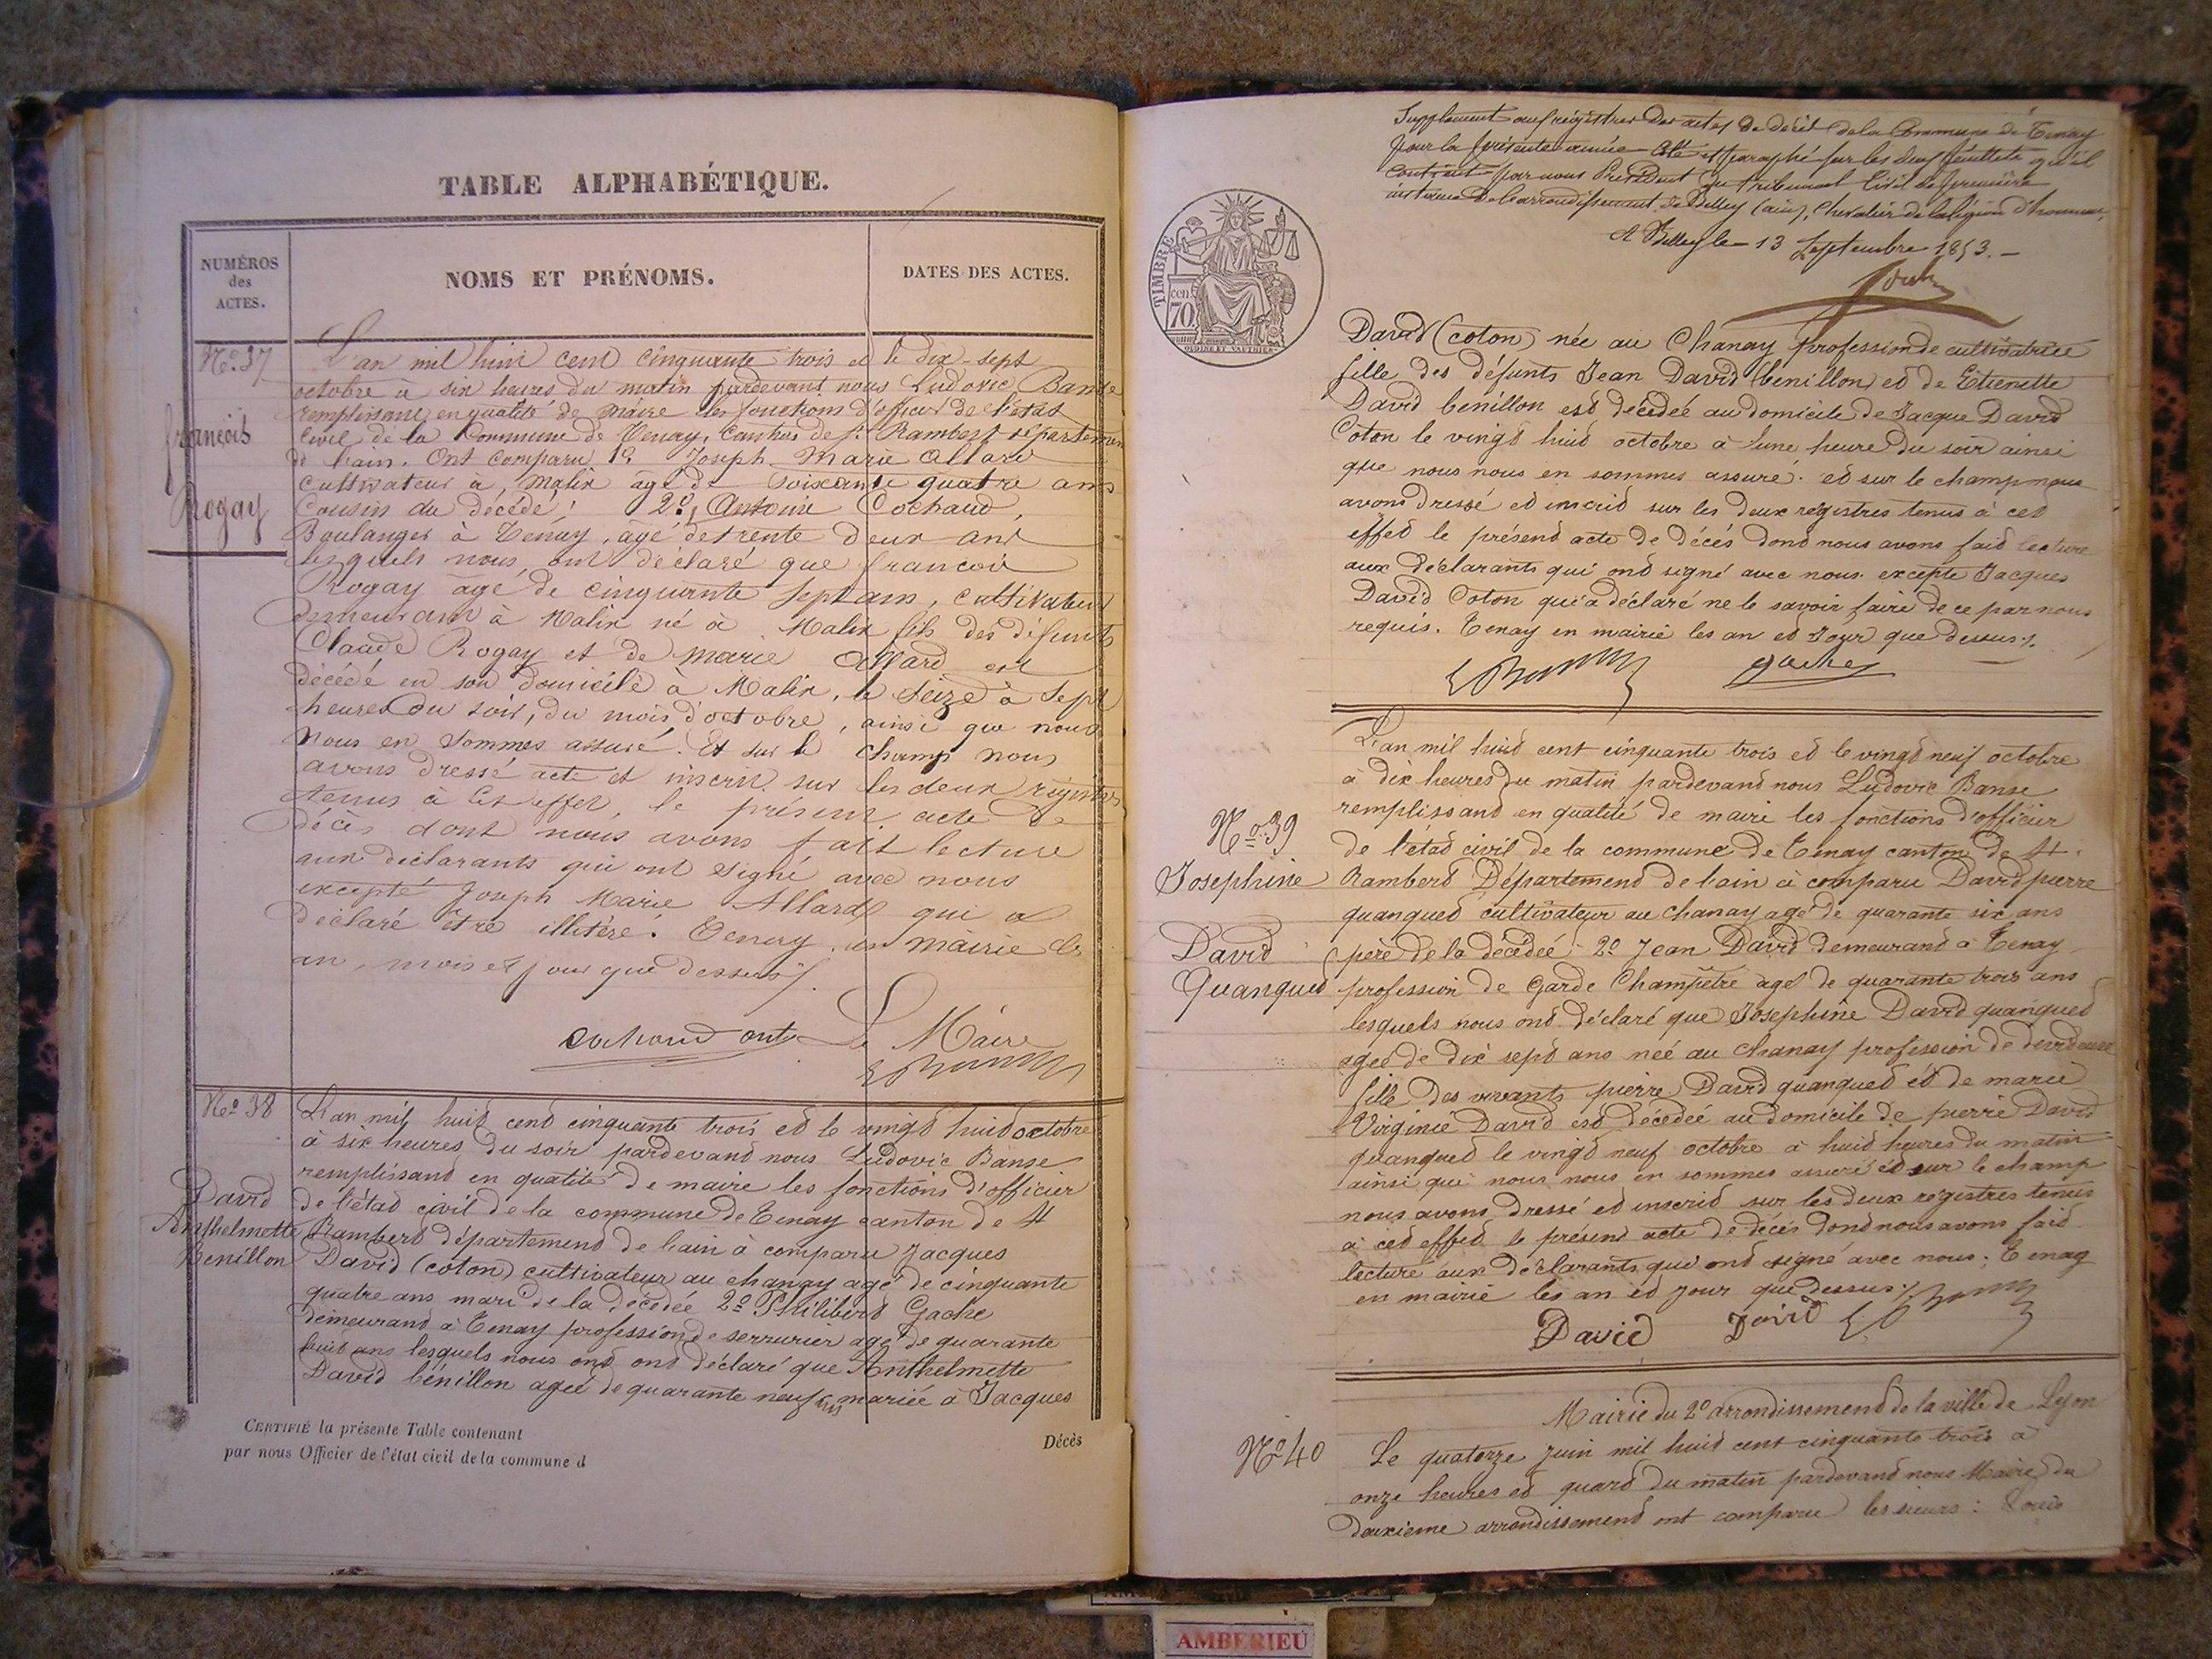 TABLE ALPHABÉTIQUE.
NUMÉROS
des
ACTES.
NOMS ET PRÉNOMS.
DATES DES ACTES.
No. 37
françois
Rogay
L'an mil huit cent cinquante trois et le dix-sept
octobre a six heures du matin pardevant nous Ludovic Banse
remplissant en qualité de maire les fonctions d'officier de l'état
civil de la Commune de Tenay, Canton de St Rambert département
de l'ain. Ont Comparu 1o. Joseph Marie Allard
Cultivateur a Malix âgé de Soixante quatre ans
Cousin du décédé: 2o, Antoine Cochaud,
Boulanger à Tenay, âgé de trente deux ans
lesquels nous ont déclaré que francois
Rogay âgé de cinquante Sept ans, Cultivateur
demeurant à Malix né à Malix fils des défunts
Claude Rogay et de Marie Allard est
décédé en son domicile à Malix, le Seize à Sept
heures du soir, du mois d'octobre, ainsi que nous
nous en sommes assuré. Et sur le champ nous
avons dressé acte et inscrit sur les deux registres
tenus à cet effet, le présent acte de
décès dont nous avons fait lecture
aux déclarants qui ont signé avec nous
excepté Joseph Marie Allard qui a
déclaré être illitéré. Tenay en mairie les
an, mois et jour que dessus./.
Cochaud ant Le Maire
LBanse
No 38
David
Anthelmette
Benillon
L'an mil huid cend cinquante trois ed le vingd huid octobre
à six heures du soir pardevand nous Ludovic Banse
remplissand en qualité de maire les fonctions d'officier
de l'étad civil de la commune de Tenay canton de St
Ramberd départemend de l'ain à comparu Jacques
David (coton) cultivateur au chanay agé de cinquante
quatre ans mari de la décédée 2o Philiberd Gache
demeurand à Tenay profession de serrurier agé de quarante
huid ans lesquels nous ond ond déclaré que Anthelmette
David bénillon ageé de quarante neuf ans mariée à Jacques
CERTIFIÉ la présente Table contenant
Décès
par nous Officier de l'état civil de la commune d
Supplement aux régistres des actes de décès de la Commune de Tenay
pour la présente année Coté et paraphé sur les deux feuillets qu'il
contient par nous Président du tribunal Civil de première
instance de l'arrondissement de Belley (ain), Chevalier de la légion d'honneur,
A Belley le 13 Septembre 1853.
TIMBRE
cen
70
David (coton) née au Chanay profession de cultivatrice
fille des défunts Jean David (benillon) ed de Etienette
David benillon esd décédeé au domicile de Jacque David
Coton le vingd huid octobre à une heure du soir ainsi
que nous nous en sommes assuré. ed sur le champ nous
avons dressé ed inscrid sur les deux registres tenus à ced
effed le présend acte de décés dond nous avons faid lecture
aux déclarants qui ond signé avec nous. excepté Jacques
David Coton qui a déclaré ne le savoir faire de ce par nous
requis. Tenay en mairie les an ed Jour que dessus./.
LBanse gache
No. 39
Josephine
David
Quanqued
L'an mil huid cent cinquante trois ed le vingd neuf octobre
à dix heures du matin pardevand nous Ludovic Banse
remplissand en qualité de maire les fonctions d'officier
de l'étad civil de la commune de Tenay canton de St.
Ramberd Départemend de l'ain à comparu David pierre
quanqued cultivateur au chanay agé de quarante six ans
père de la décédeé 2o Jean David demeurand à Tenay
profession de Garde Champêtre agé de quarante trois ans
lesquels nous ond déclaré que Josephine David quanqued
ageé de dix sepd ans neé au chanay profession de
fille des vivants pierre David quanqued ed de marie
Virginie David esd décédeé au domicile de pierre David
quanqued le vingd neuf octobre à huid heures du matin
ainsi que nous nous en sommes assuré ed sur le champ
nous avons dressé ed inscrid sur les deux registres tenus
à ced effed le présend acte de décés dond nous avons faid
lecture aux déclarants qui ond signé avec nous: Tenay
en mairie les an ed jour que dessus./.
David David LBanse
Mairie du 2o arrondissemend de la ville de Lyon
No 40
Le quatorze juin mil huid cent cinquante trois à
onze heures ed quard du matin pardevand nous Maire du
deuxieme arrondissemend ont comparu les sieurs: Louis
AMBERIEU